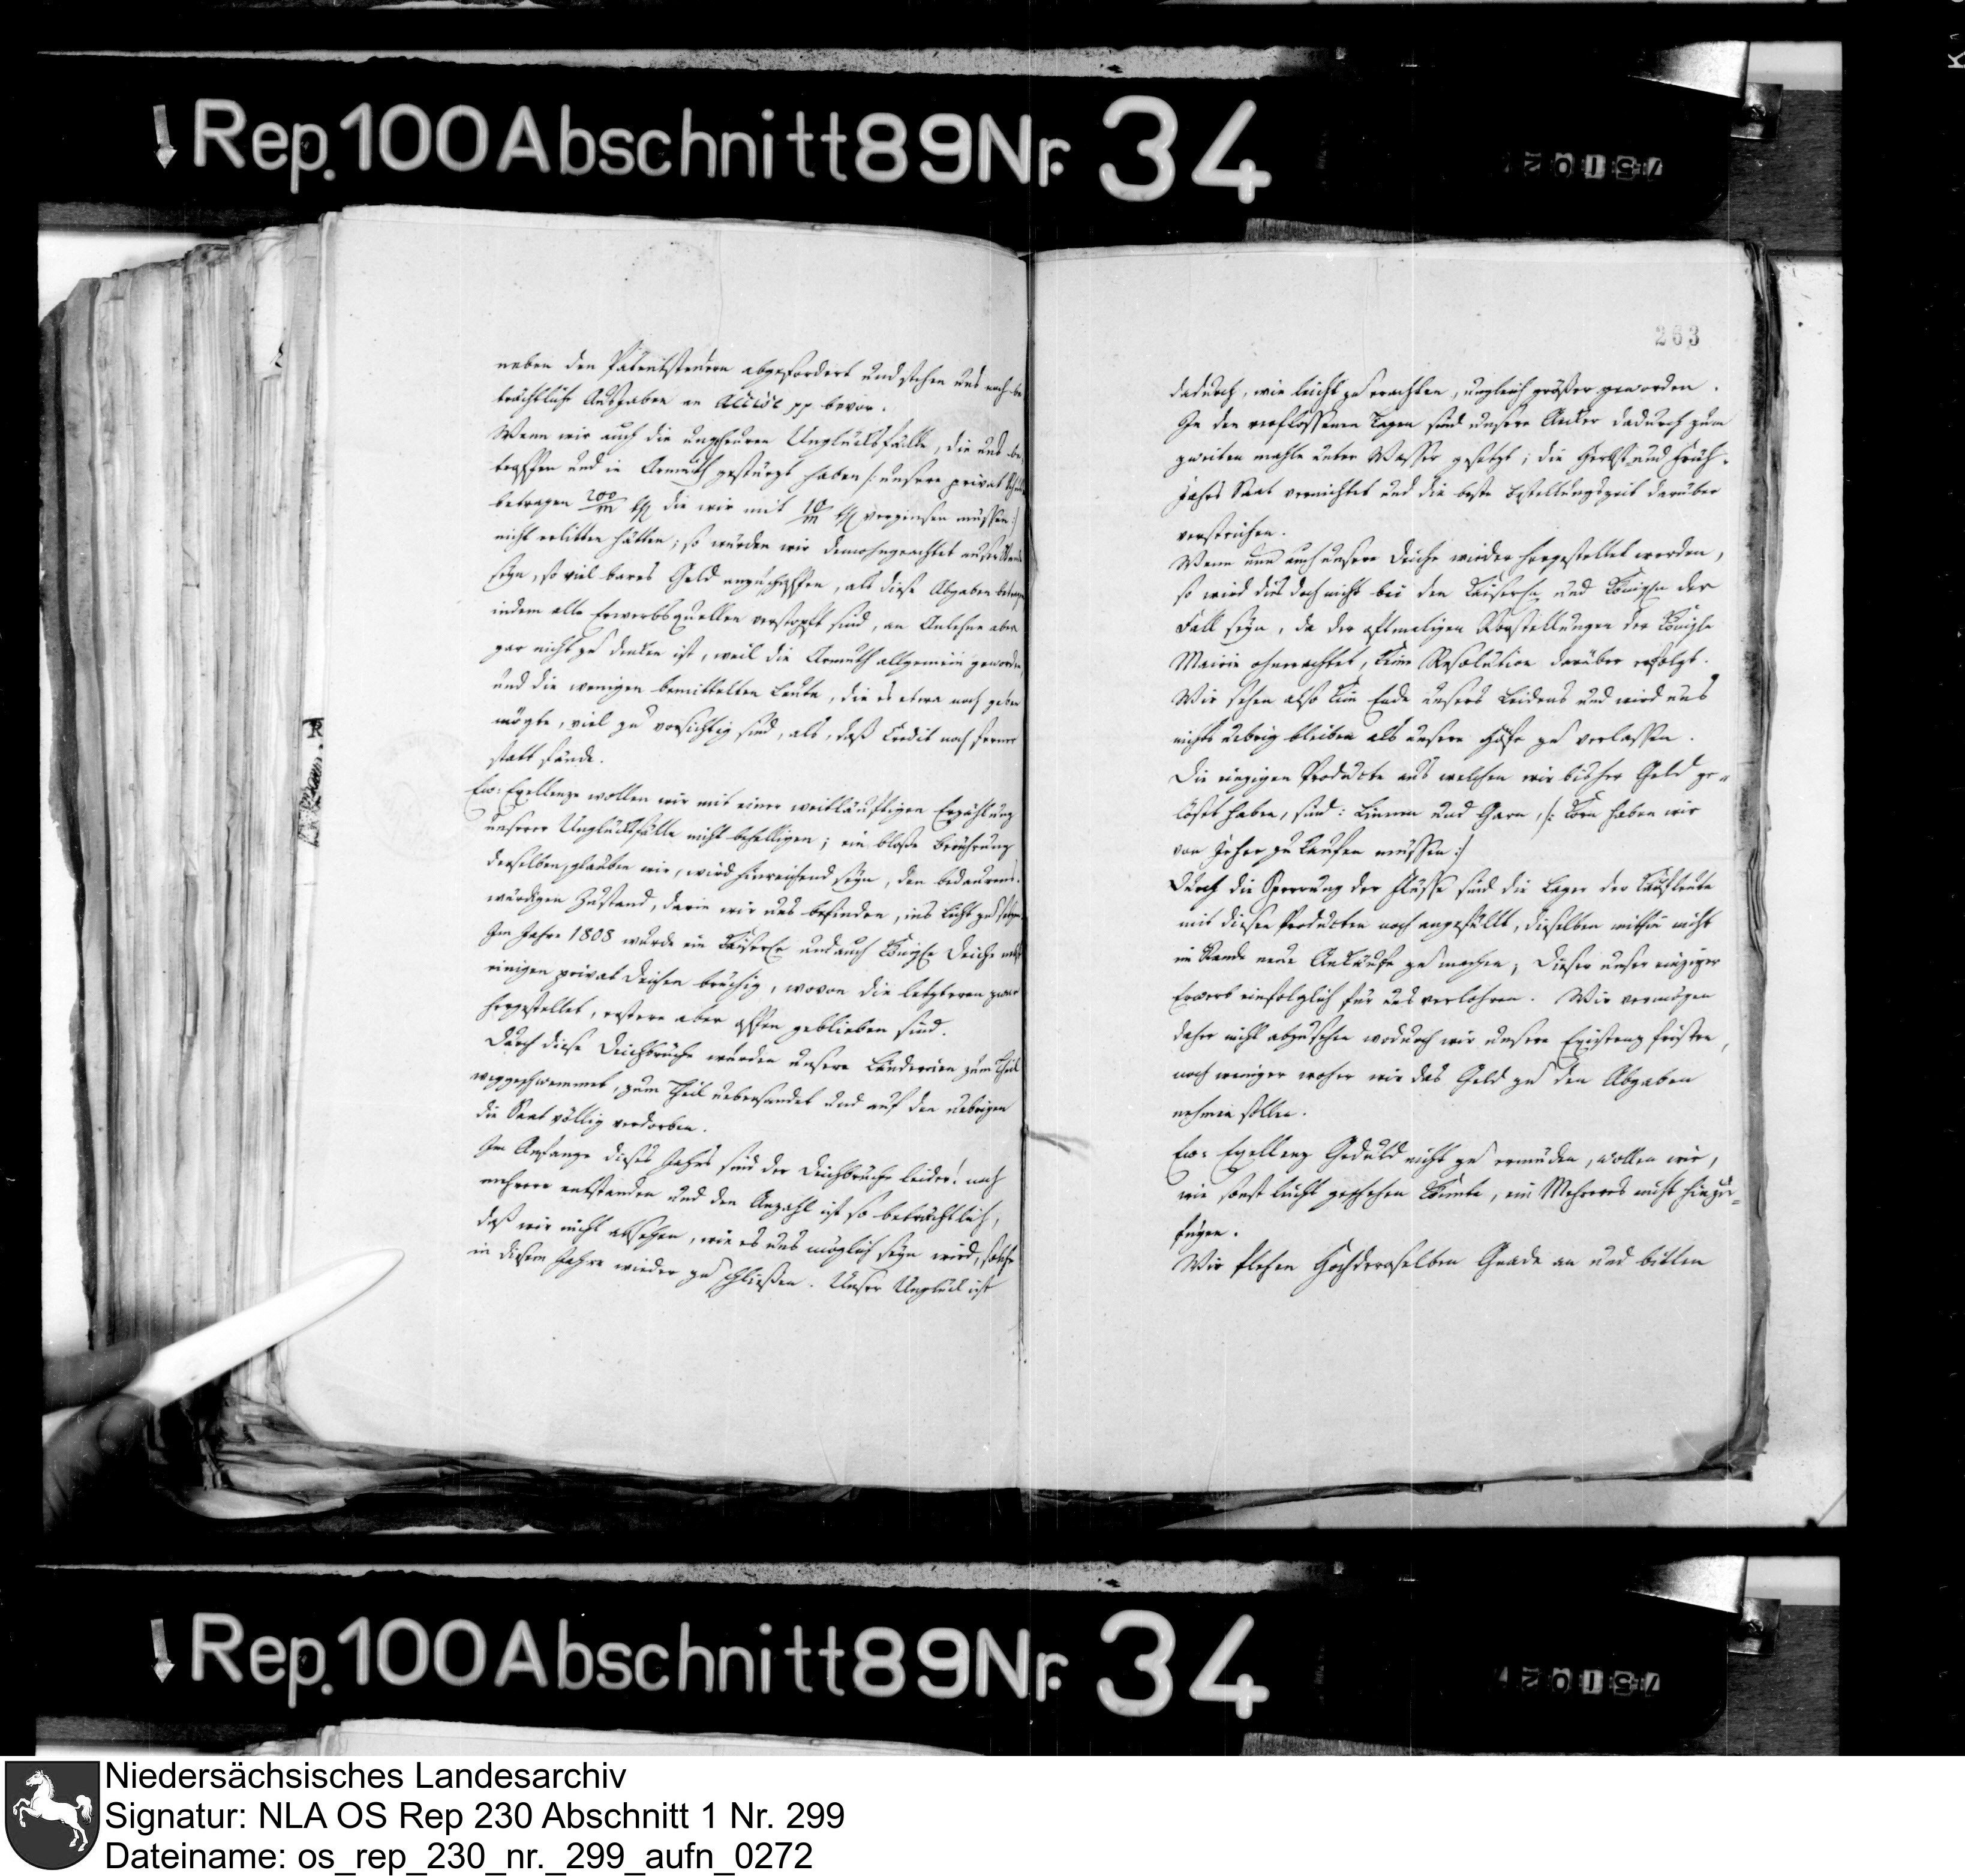 Rep. 100 Abschnitt 89 Nr. 34
neben den Patentsteuern abgefordert und stehen uns noch be
trächtliche Ausgaben an Accise pp bevor.
Wenn wir auch die ungeheuren Unglücksfälle, die uns be
troffen und in Armuth gestürzt haben /: unsere privat
betragen 200/m die wir mit 10/m verzinsen müssen :/
nicht erlitten hätten; so würden wir demohngeachtet außer Stande
seyn, so viel bares Geld anzuschaffen, als diese Abgaben betragen
indem alle Erwerbsquellen verstopft sind, an Anlehne aber
gar nicht zu denken ist, weil die Armuth allgemein geworden,
und die wenigen bemittelten Leute, die es etwa noch geben
mögte, viel zu vorsichtig sind, als, daß Credit noch ferner
statt fände.
Ew: Exellenze wollen wir mit einer weitläuftigen Erzählung
unserer Unglücksfälle nicht behelligen; ein bloße Berührung
derselben, glauben wir, wird hinreichend seyn, den bedaurens-
würdigen Zustand, darin wir uns befinden, ins Licht zu setzen.
Im Jahre 1808 wurde ein Kaiserl. und auch Königl. Deiche nebst
einigen privat Deichen brüchig, wovon die letzteren zwar
hergestellet, erstere aber offen geblieben sind.
Durch diese Deichbrüche wurden unsere Ländereien zum Theil
weggeschwemmet, zum Theil uebersandet und auf den uebrigen
die Saat völlig verdorben.
Im Anfange dieses Jahrs sind der Deichbrüche leider! noch
mehrere entstanden und den Anzahl ist so beträchtlich,
daß wir nicht absehen, wie es uns möglich seyn wird, solche
in diesem Jahre wieder zu schließen. Unser Unglück ist
263
dadurch, wie leicht zu erachten, ungleich größer geworden.
In den verflossenen Tagen sind unsere Äcker dadurch zum
zweiten mahle unter Wasser gesetzt; die Herbst und Früh-
jahrs Saat vernichtet und die beste Bestellungszeit darüber
verstrichen.
Wenn nun auch unsere Deiche wieder hergestellet werden,
so wird dies doch nicht bei den Kaiserln und Königln der
Fall seyn, da der oftmaligen Vorstellungen der Königln
Mairie ohnerachtet, keine Resolution darüber erfolgt.
Wir sehen also kein Ende unsers Leidens und wird uns
nichts uebrig bleiben als unsere Höfe zu verlassen.
Die einzigen Producte aus welchen wir bisher Geld ge-
löset haben, sind: Linnen und Garn, /: Korn haben wir
von jeher zu kaufen müssen :/
Durch die Sperrung der Flüsse sind die Lager der Kaufleute
mit diesen Producten noch angefüllt, dieselben mithin nicht
im Stande neue Ankäufe zu machen; dieser unser einziger
Erwerb einfolglich für uns verlohren. Wir vermögen
daher nicht abzusehen wodurch wir unsere Existenz fristen,
noch weniger woher wir das Geld zu den Abgaben
nehmen sollen.
Ew: Exellenz Geduld nicht zu ermüden, wollen wir,
wie sonst leicht geschehen könnte, ein Mehreres nicht hinzu-
fügen.
Wir flehen Hochderoselben Gnade an und bitten
Rep. 100 Abschnitt 89 Nr. 34
Niedersächsisches Landesarchiv
Signatur: NLA OS Rep 230 Abschnitt 1 Nr. 299
Dateiname: os_rep_230_nr._299_aufn_0272